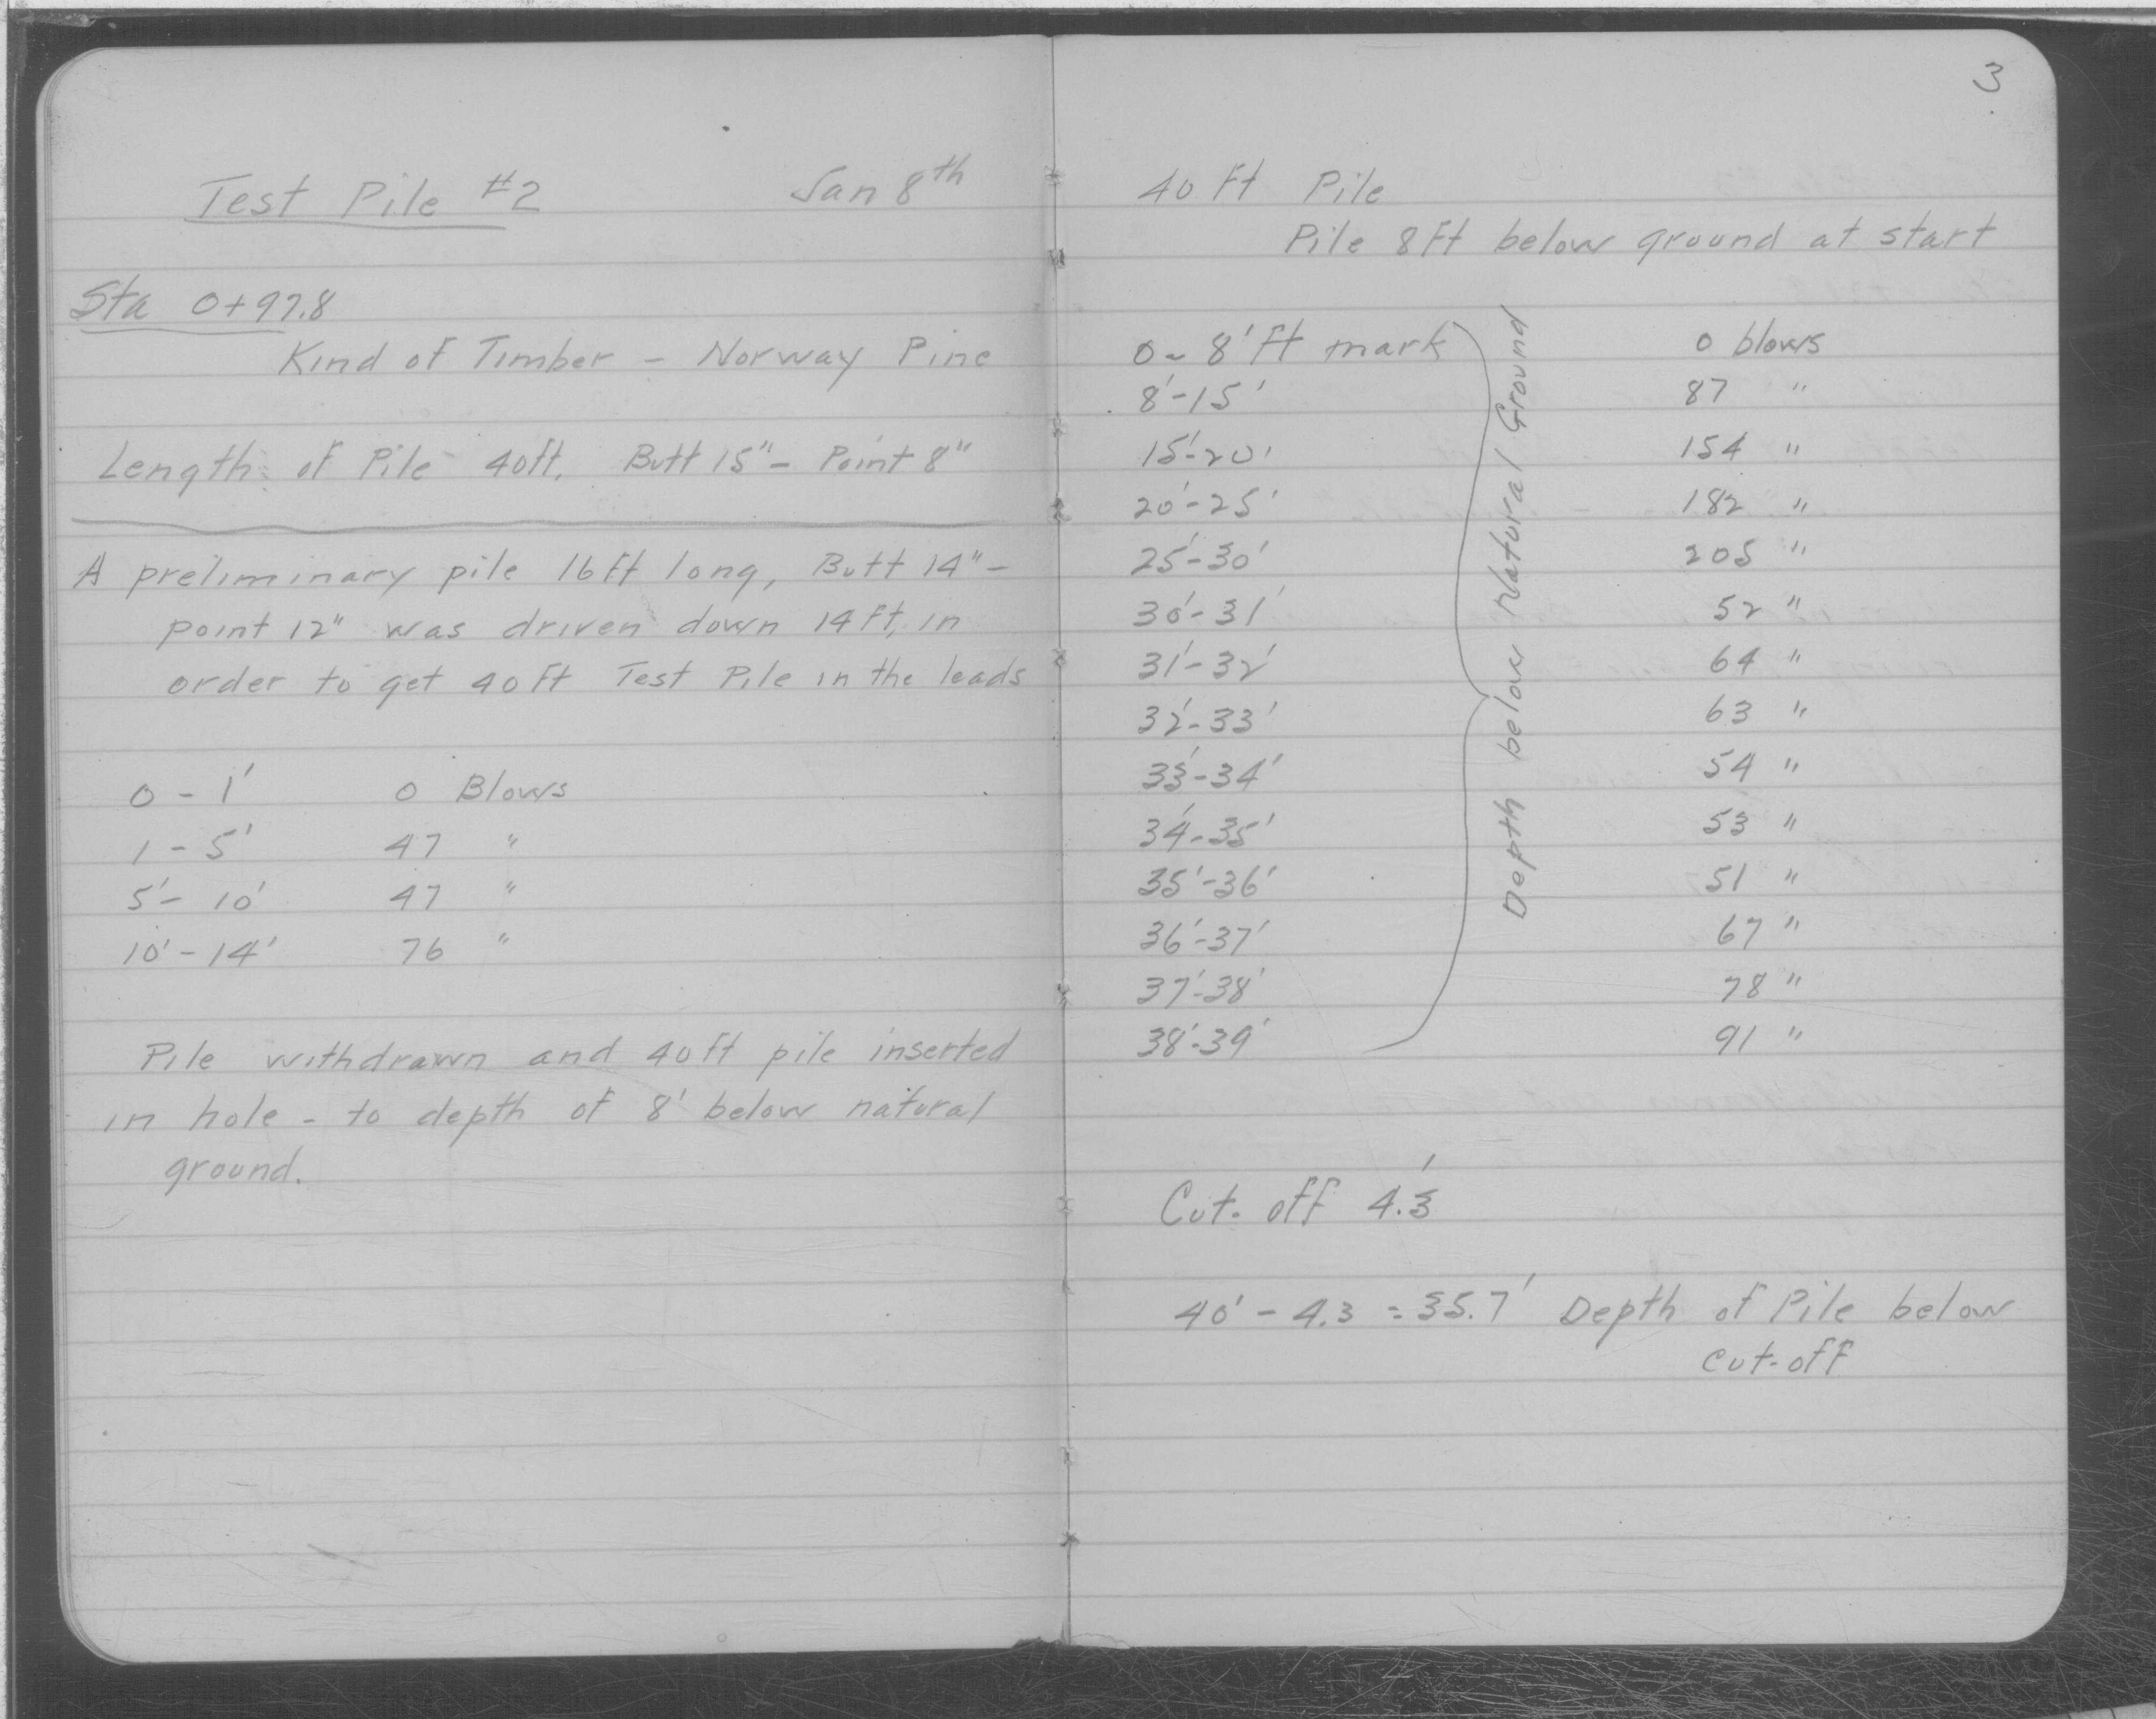 Test Pile #2 Jan 8th
Sta 0+97.8
Kind of Timber - Norway Pine
Length of Pile 40ft. Butt 15" - Point 8"
A preliminary pile 16ft long, Butt 14" -
point 12" was driven down 14ft, in
order to get 40ft Test Pile in the leads
0 - 1' 0 Blows
1 - 5' 47 "
5' - 10' 47 "
10' - 14' 76 "
Pile withdrawn and 40ft pile inserted
in hole - to depth of 8' below natural
ground.
3
40 ft Pile
Pile 8ft below ground at start
0 - 8' ft mark 0 blows
8' - 15' 87 "
15' - 20' 154 "
20' - 25' 182 "
25' - 30' 205 "
30' - 31' 52 "
31' - 32' 64 "
32' - 33' 63 "
33' - 34' 54 "
34' - 35' 53 "
35' - 36' 51 "
36' - 37' 67 "
37' - 38' 78 "
38' - 39' 91 "
Depth below Natural Ground
Cut-off 4.3'
40' - 4.3 = 35.7' Depth of Pile below
cut-off